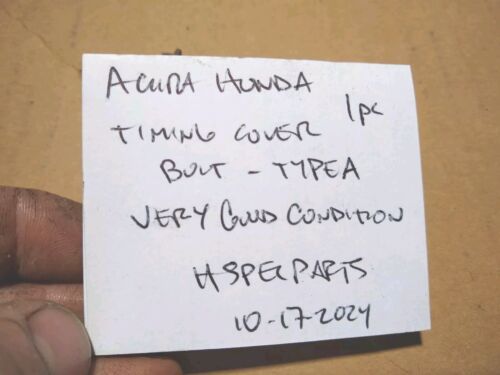 ACURA HONDA
TIMING COVER 1pc
BOLT - TYPE A
VERY GOOD CONDITION
HSPECPARTS
10-17-2024